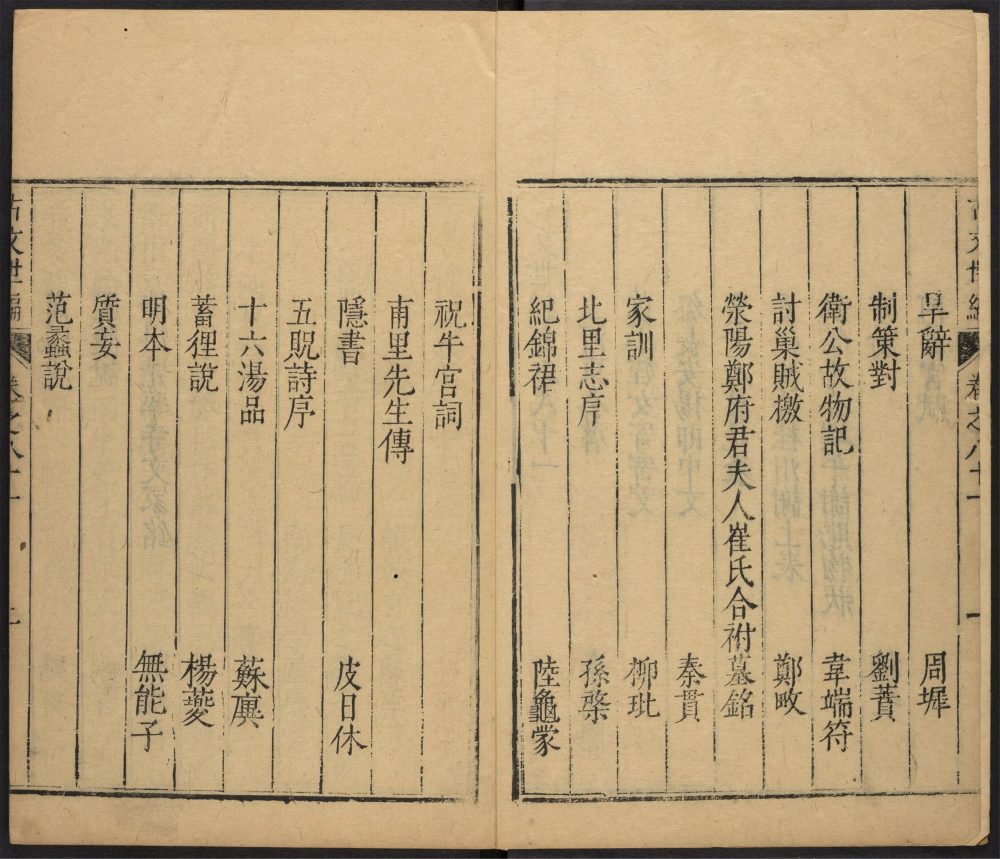 古文世編 卷之八十一 一
旱辭 周墀
制策對 劉蕡
衛公故物記 韋端符
討巢賊檄 鄭畋
滎陽鄭府君夫人崔氏合祔墓銘
秦貫
家訓 柳玭
北里志序 孫棨
紀錦裙 陸龜蒙
祝牛宮詞
甫里先生傳
隱書 皮日休
五貺詩序
十六湯品 蘇廙
蓄狸說 楊夔
明本 無能子
質妄
范蠡說
古文世編 卷之八十一